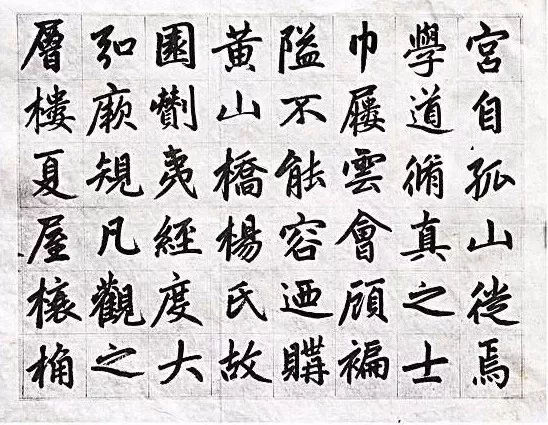 宮自孤山徙焉
學道脩真之士
巾屨雲會顧褊
隘不能容迺購
黃山橋楊氏故
園劗夷經度大
弘厥規凡觀之
層樓夏屋榱桷